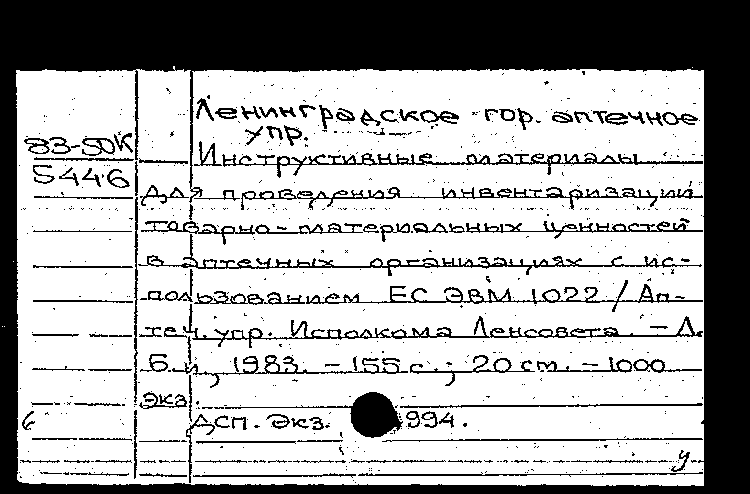 Ленинградское гор. аптечное
упр.
83-50К
5446
Инструктивные материалы
для проведения инвентаризации
товарно-материальных ценностей
в аптечных организациях с ис-
пользованием ЕС ЭВМ 1022 / Ап-
теч. упр. Исполкома Ленсовета. – Л.
Б.и, 1983. – 155 с.; 20 см. – 1000
экз.
6
ДСП. Экз. 994.
у